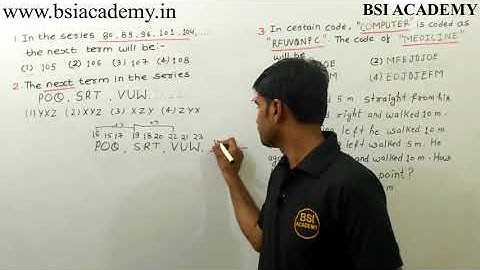 www.bsiacademy.in
BSI ACADEMY
1. In the series 80, 89, 96, 101, 104, ....
the next term will be:-
(1) 105 (2) 106 (3) 107 (4) 108
2. The next term in the series
POQ, S R T, VUW.......
(1) YXZ (2) XYZ (3) XZY (4) ZYX
16 15 17 19 18 20 22 21 23
POQ, SRT, VUW,
3. In centain code, "COMPUTER" is coded as
"RFUVQNPC". The code of "MEDICINE"
will be
(2) MFEJDJOE
(4) EOJDJEFM
5 m straight from his
right and walked 10 m.
left he walked 10 m.
left walked 5 m. He
and walked 10 m. How
point?
m.
BSI
ACADEMY